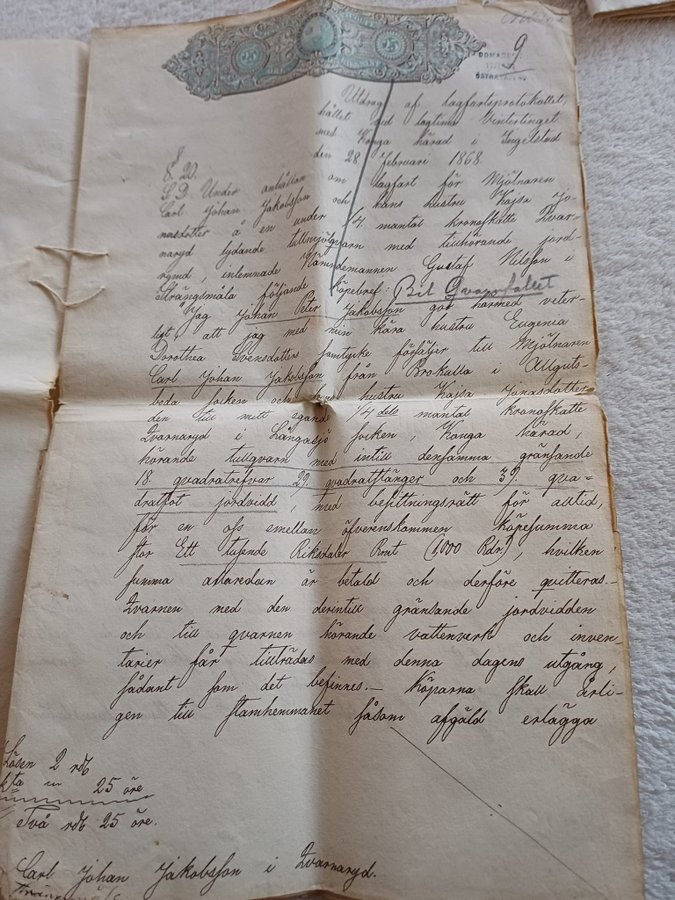 25 25
9
Utdrag af lagfartsprotokollet,
hållet vid lagtima Vintertinget
med Konga härad i Ingelstad
den 28 Februari 1868.
§. 20.
S. D. Under anhållan om lagfart för Mjölnaren
Carl Johan Jakobsson och hans hustru Kajsa Jo-
nasdotter å en under 1/4 mantal kronoskatte Qvar-
naryd lydande tullmjölqvarn med tillhörande jord-
rymd, inlemnade Nämndemannen Gustaf Nilsson i
Strängsmåla följande Köpebref:
"Jag Johan Peter Jakobsson gör härmed veter-
ligt, att jag med min kära hustru Eugenia
Dorothea Svensdotters samtycke försäljer till Mjölnaren
Carl Johan Jakobsson från Brokulla i Allguts-
boda socken och hustru Kajsa Jonasdotter
den till mitt egande 1/4 dels mantal kronoskatte
Qvarnaryd i Långasjö socken, Konga härad,
hörande tullqvarn med intill densamma gränsande
18 qvadratrefvar 29 qvadratstänger och 39 qva-
dratfot jordvidd, med besittningsrätt för alltid,
för en oss emellan öfverenskommen köpesumma
stor Ett tusende Riksdaler Rmt (1000 Rdr), hvilken
summa allaredan är betald och derföre qvitteras.-
Qvarnen med den derintill gränsande jordvidden
och till qvarnen hörande vattenverk och inven
tarier får tillträdas med denna dagens utgång,
sådant som det befinnes.- Köparna skall årli-
gen till stamhemmanet såsom afgäld erlägga
Lösen 2 rdr
25 öre
Två rdr 25 öre.
Carl Johan Jakobsson i Qvarnaryd.